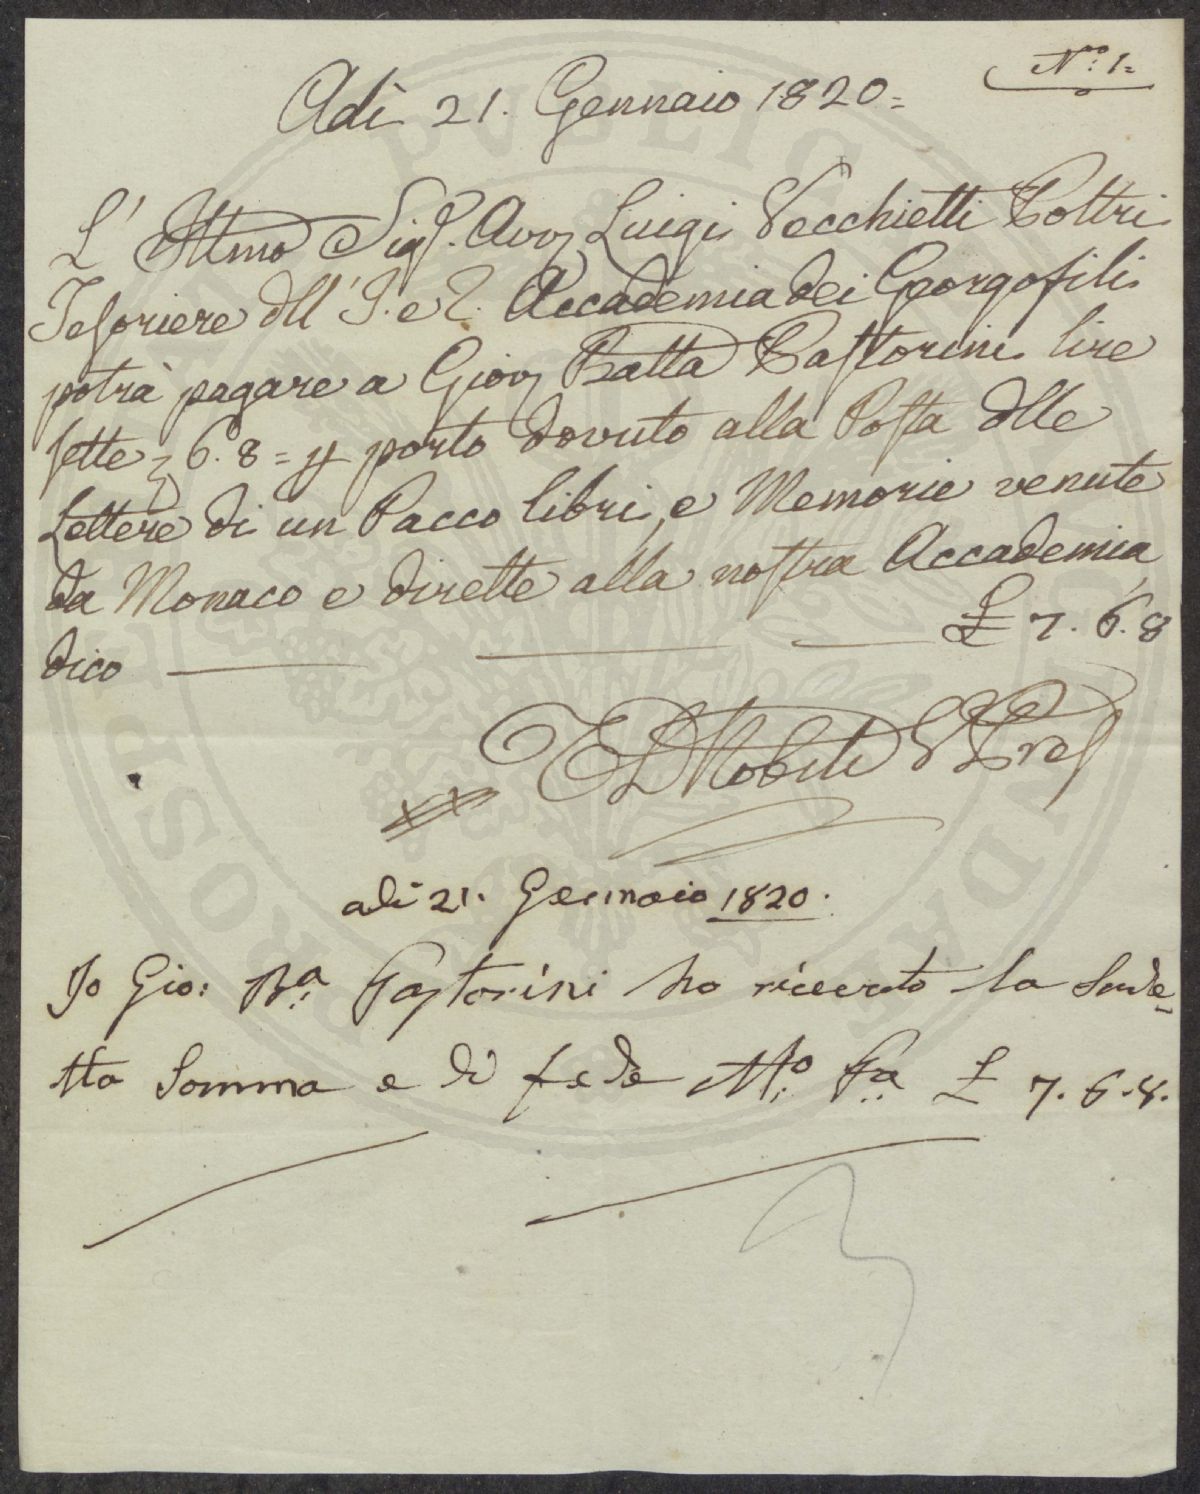 N.º 1=
Adì 21. Gennaio 1820=
L' Illmo Sigr. Avv Luigi Vecchietti Poltri
Tesoriere dll' I. e R. Accademia dei Georgofili
potrà pagare a Giov Batta Pastorini lire
sette 6.8= p porto dovuto alla Posta dlle
Lettere di un Pacco libri, e Memorie venute
da Monaco e dirette alla nostra Accademia
dico £ 7. 6. 8
Nobili V Pres
adì 21. Gennaio 1820.
Io Gio: Ba. Pastorini ho riceuto la Sude-
tta Somma e di fede Mo. Pa £ 7. 6. 8.
PUBLICA
PROSP